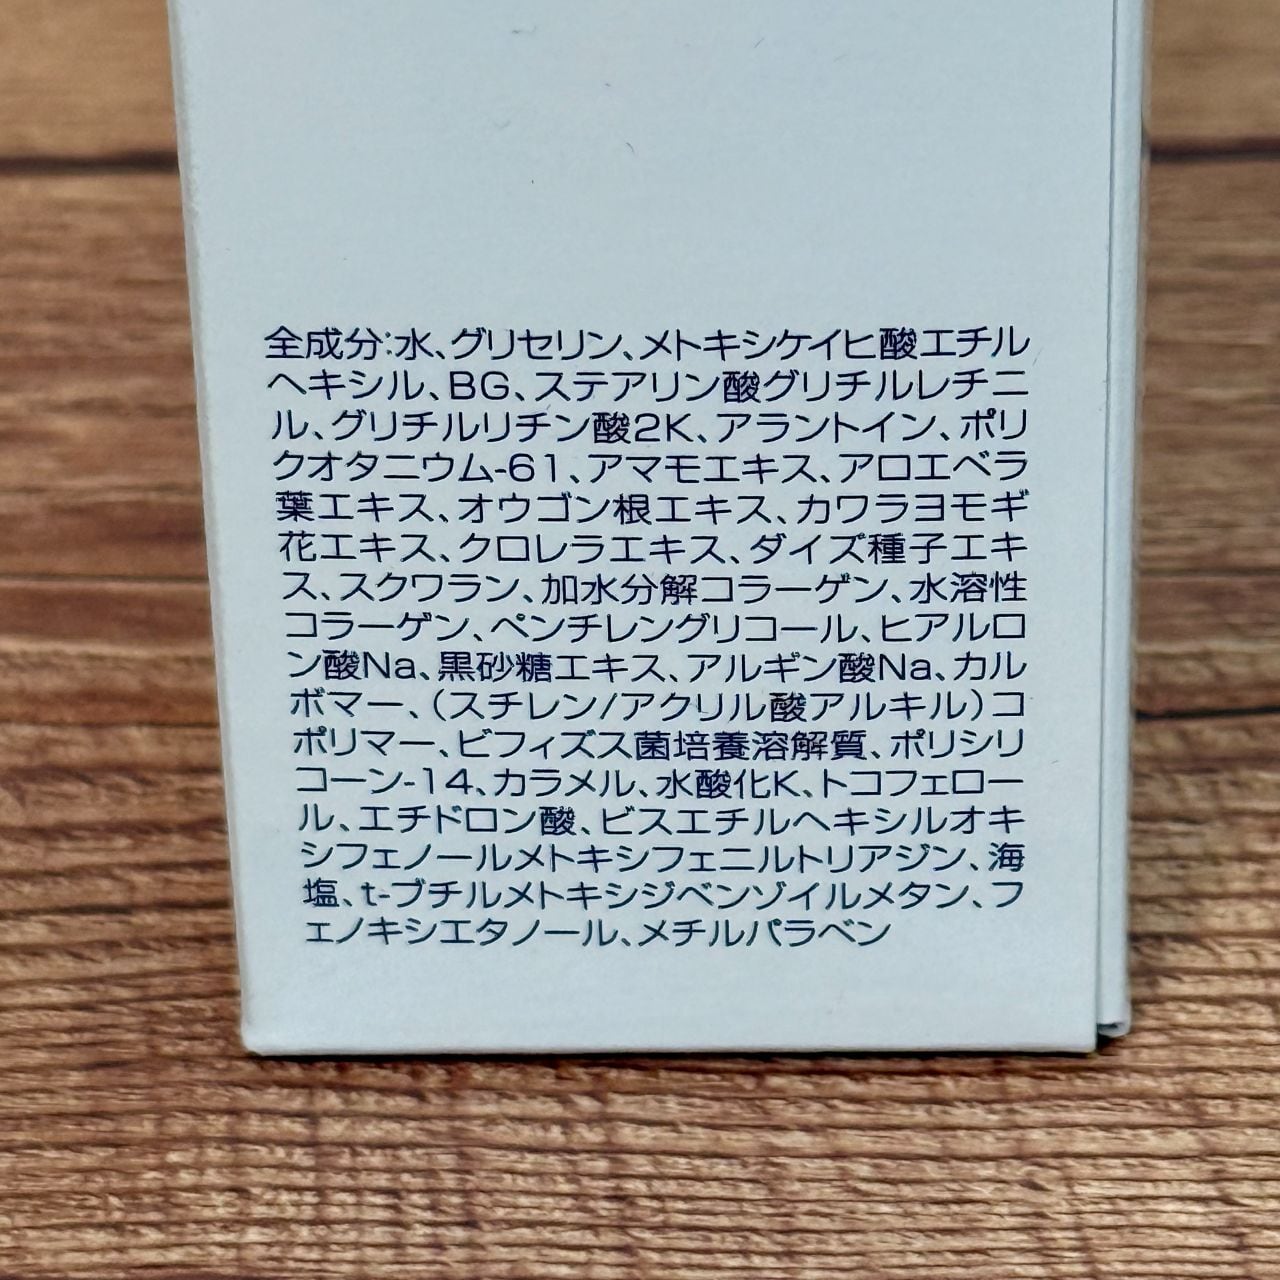 全成分:水、グリセリン、メトキシケイヒ酸エチル
ヘキシル、BG、ステアリン酸グリチルレチニ
ル、グリチルリチン酸2K、アラントイン、ポリ
クオタニウム-61、アマモエキス、アロエベラ
葉エキス、オウゴン根エキス、カワラヨモギ
花エキス、クロレラエキス、ダイズ種子エキ
ス、スクワラン、加水分解コラーゲン、水溶性
コラーゲン、ペンチレングリコール、ヒアルロ
ン酸Na、黒砂糖エキス、アルギン酸Na、カル
ボマー、(スチレン/アクリル酸アルキル)コ
ポリマー、ビフィズス菌培養溶解質、ポリシリ
コーン-14、カラメル、水酸化K、トコフェロー
ル、エチドロン酸、ビスエチルヘキシルオキ
シフェノールメトキシフェニルトリアジン、海
塩、t-ブチルメトキシジベンゾイルメタン、フ
ェノキシエタノール、メチルパラベン